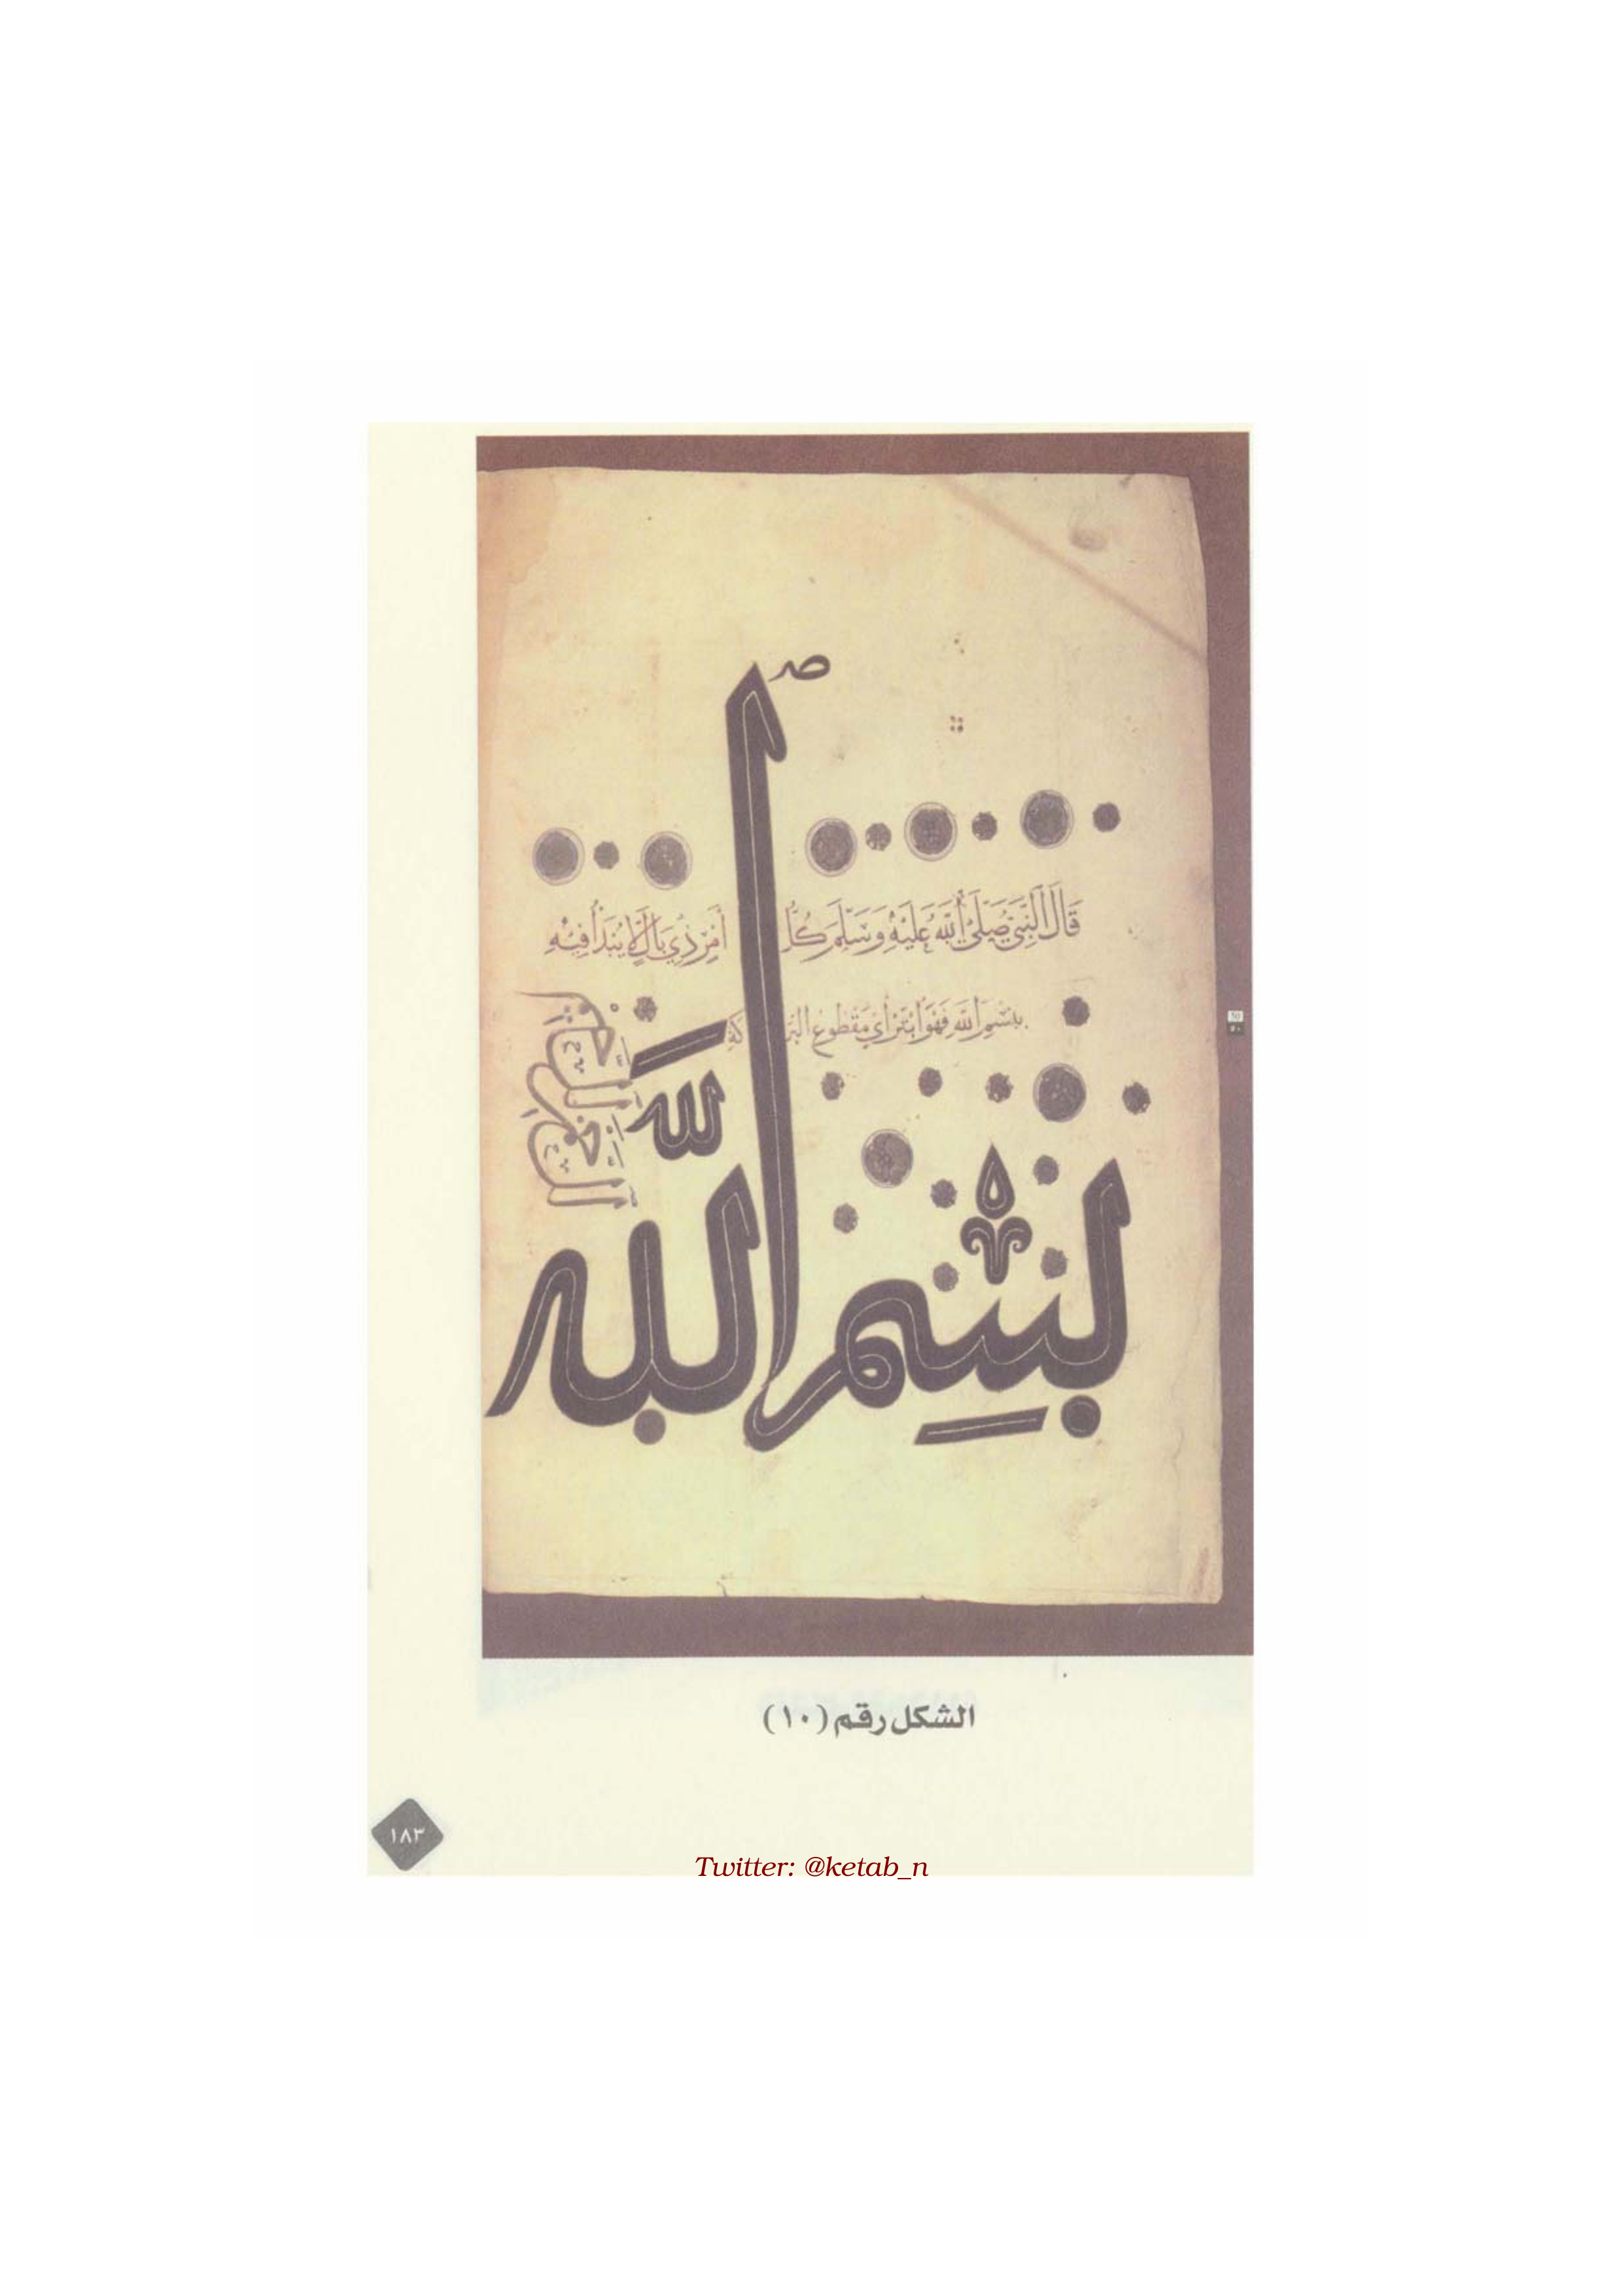 قَالَ النَّبِيُّ صَلَّى اللَّهُ عَلَيْهِ وَسَلَّمَ كُلُّ أَمْرٍ ذِي بَالٍ لَا يُبْدَأُ فِيْهِ
بِبِسْمِ اللَّهِ فَهْوَ أَبْتَرُ أَيْ مَقْطُوعُ الْبَرَكَةِ
بِسْمِ اللَّه
الرَّحْمَنِ الرَّحِيمِ
الشكل رقم (١٠)
١٨٣
Twitter: @ketab_n